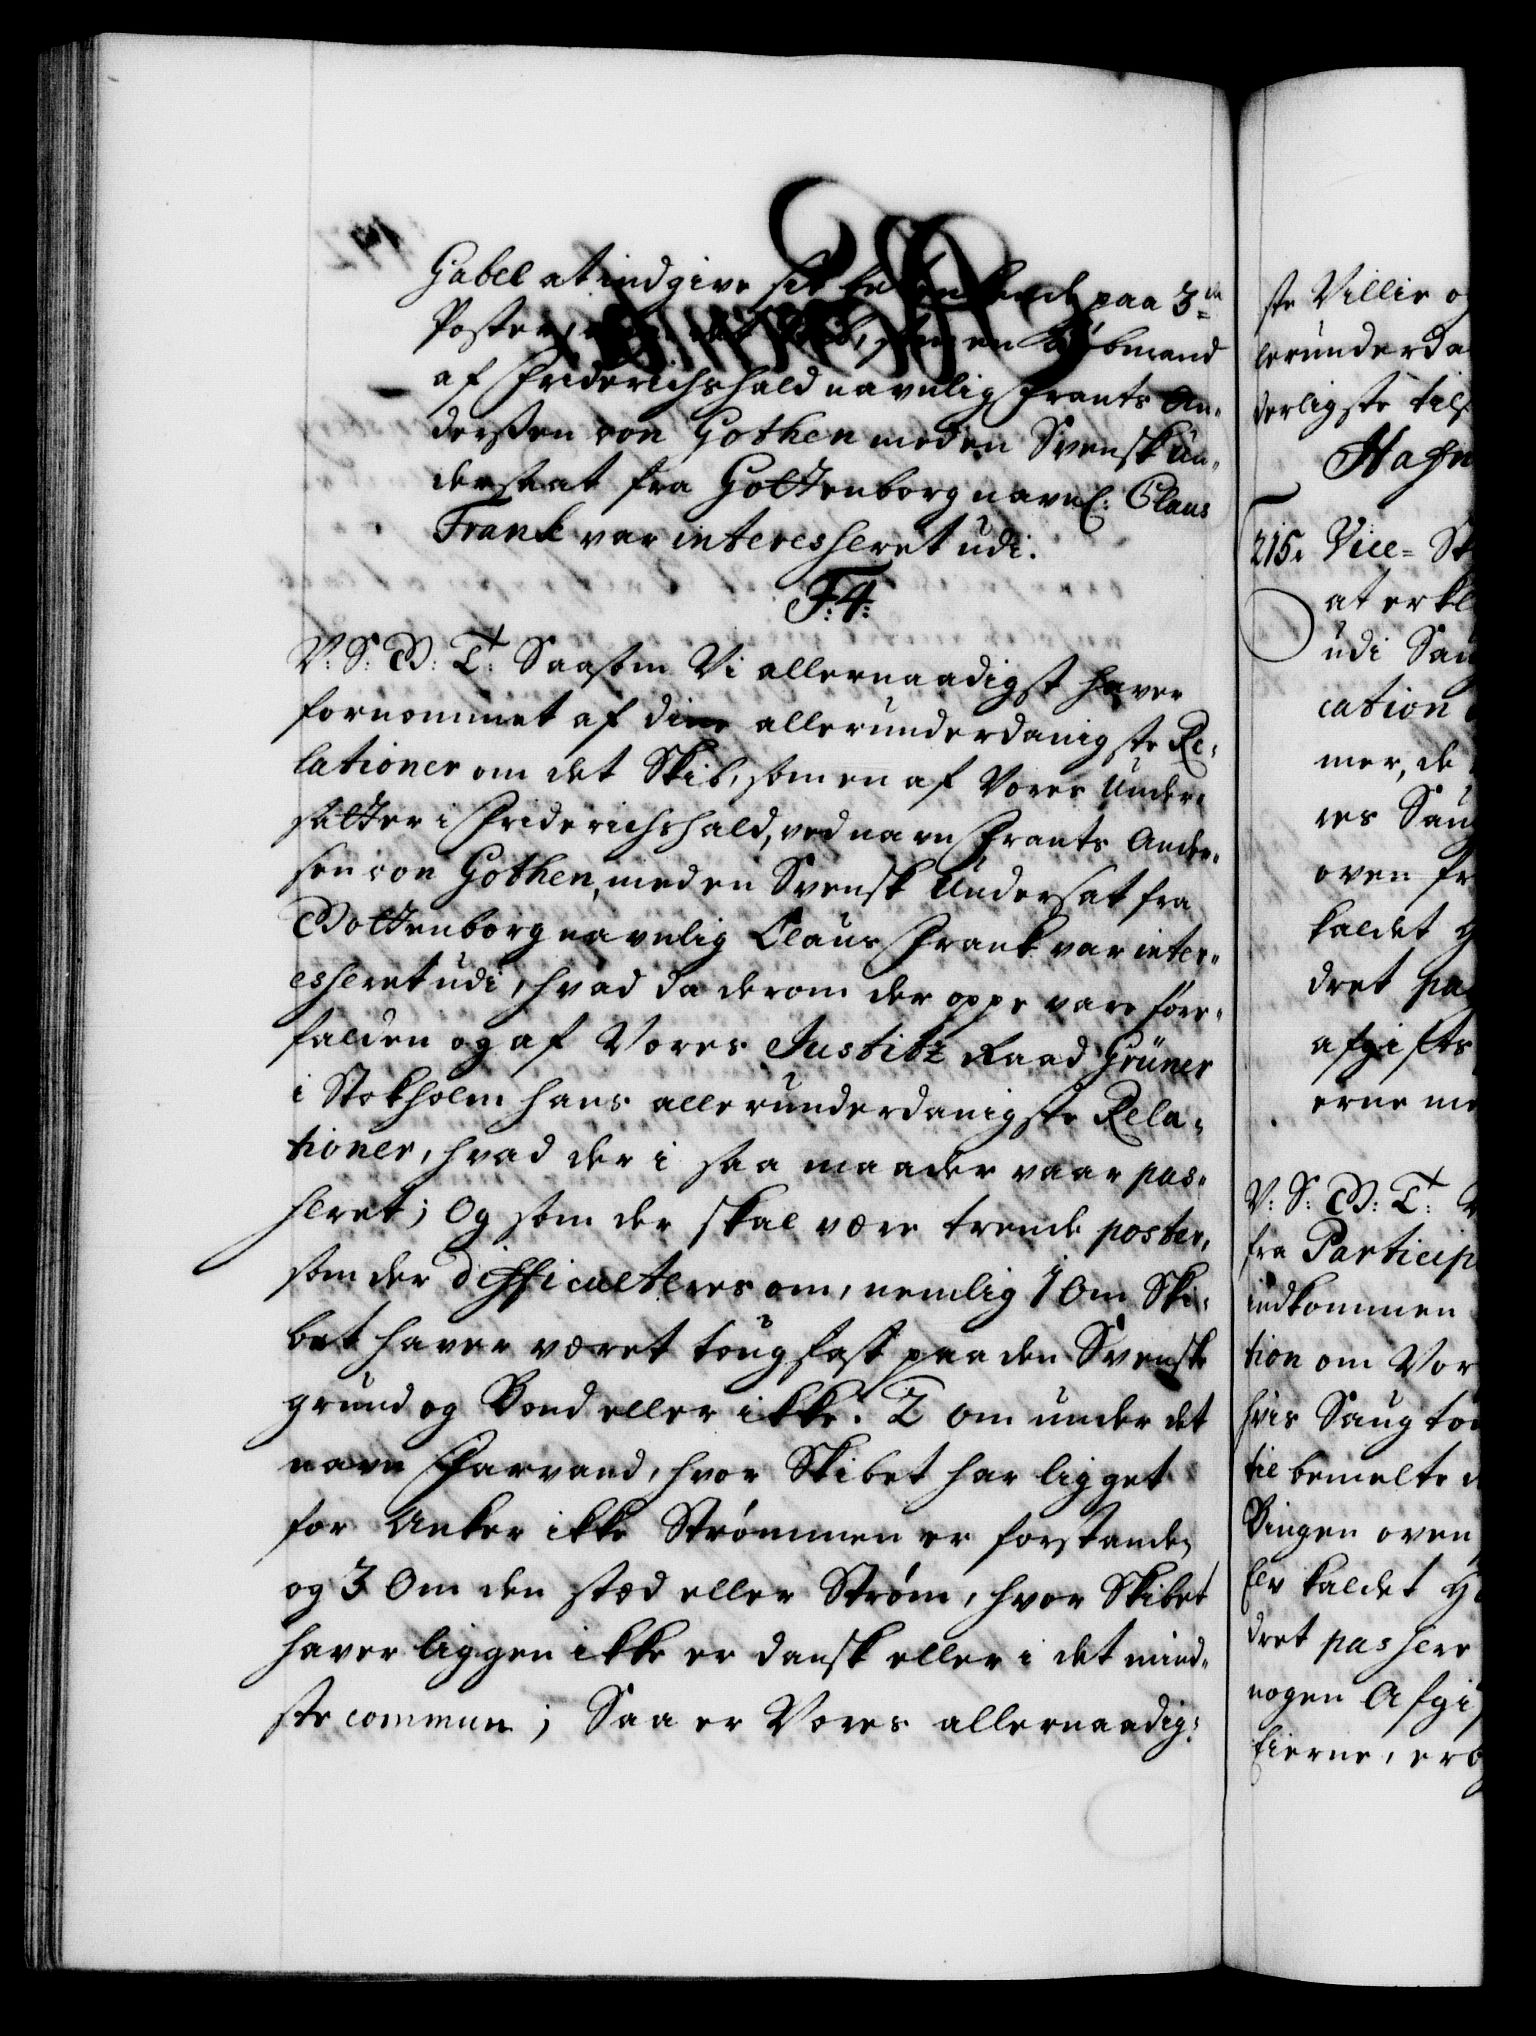 Gabel at indgive sit betænkende paa 3de
Poster, det Skib, som en Kiöbmand
af Friderichshald navnlig Frants An-
dersen von Gothen med en Svensk Un-
dersaat fra Gottenborg navnl: Claus
Frank var interesheret udi.
F:4:
V: S: G: T: Saasom Vi allernaadigst haver
fornommet af dine allerunderdanigste Re-
lationer om det Skib, som en af Vores Under-
satter i Friderichshald, ved navn Frants Ander-
sen von Gothen, med en Svensk Undersat fra
Gottenborg navnlig Claus Frank var inter-
esheret udi, hvad da derom der oppe vare fore-
falden og af Vores Justitz Raad Grüner
i Stokholm hans allerunderdanigste Rela-
tioner, hvad der i saa maader vaar pas-
heret; Og som der skal være trende poster,
som der difficulteres om, nemlig 1 Om Ski-
bet haver været tougfast paa den Svenske
grund og Bond eller ikke. 2 om under det
navn Farvand, hvor Skibet har ligget
for Anker ikke Strømmen er forstanden
og 3 Om den stæd eller Strøm, hvor Skibet
haver liggen ikke er dansk eller i det mind-
ste commun; Saa er Vores allernaadig-
ste Villie og
lerunderda
derligste til
Hafn
215. Vice-St
at erkl
udi Sau
cation
mer, de
res Saug
oven fr
kaldet H
dret pas
afgifts
erne me
V: S: G: T:
fra Particip
indkommen
tion om Vor
hvis Saug tøm
til bemelte
Bingen oven
Elv kaldet H
dret pashere
nogen Afgif
Eierne, erb